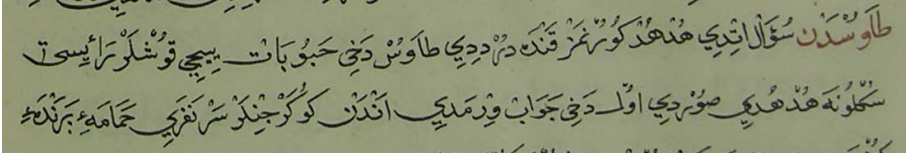 طَاوُسْدَنْ سُؤَالْ اتِدِي هُدْهُدْ كُورُنْمَزْ قَنْدَه دُرْ دِدِي طَاوُسْ دَخِي حَبُوبَاتْ يِيجِي قُوشْلَرْ رَأيِسِي
هُدْهُدِي صُورْدِي اُولْ دَخِي جَوَابْ وِرْمَدِي اَنْدَنْ كُوكَرْجِنْلَرْ سَرْنَفَرِي حَمَامَهٴِ بَرَنْدَهٴِ